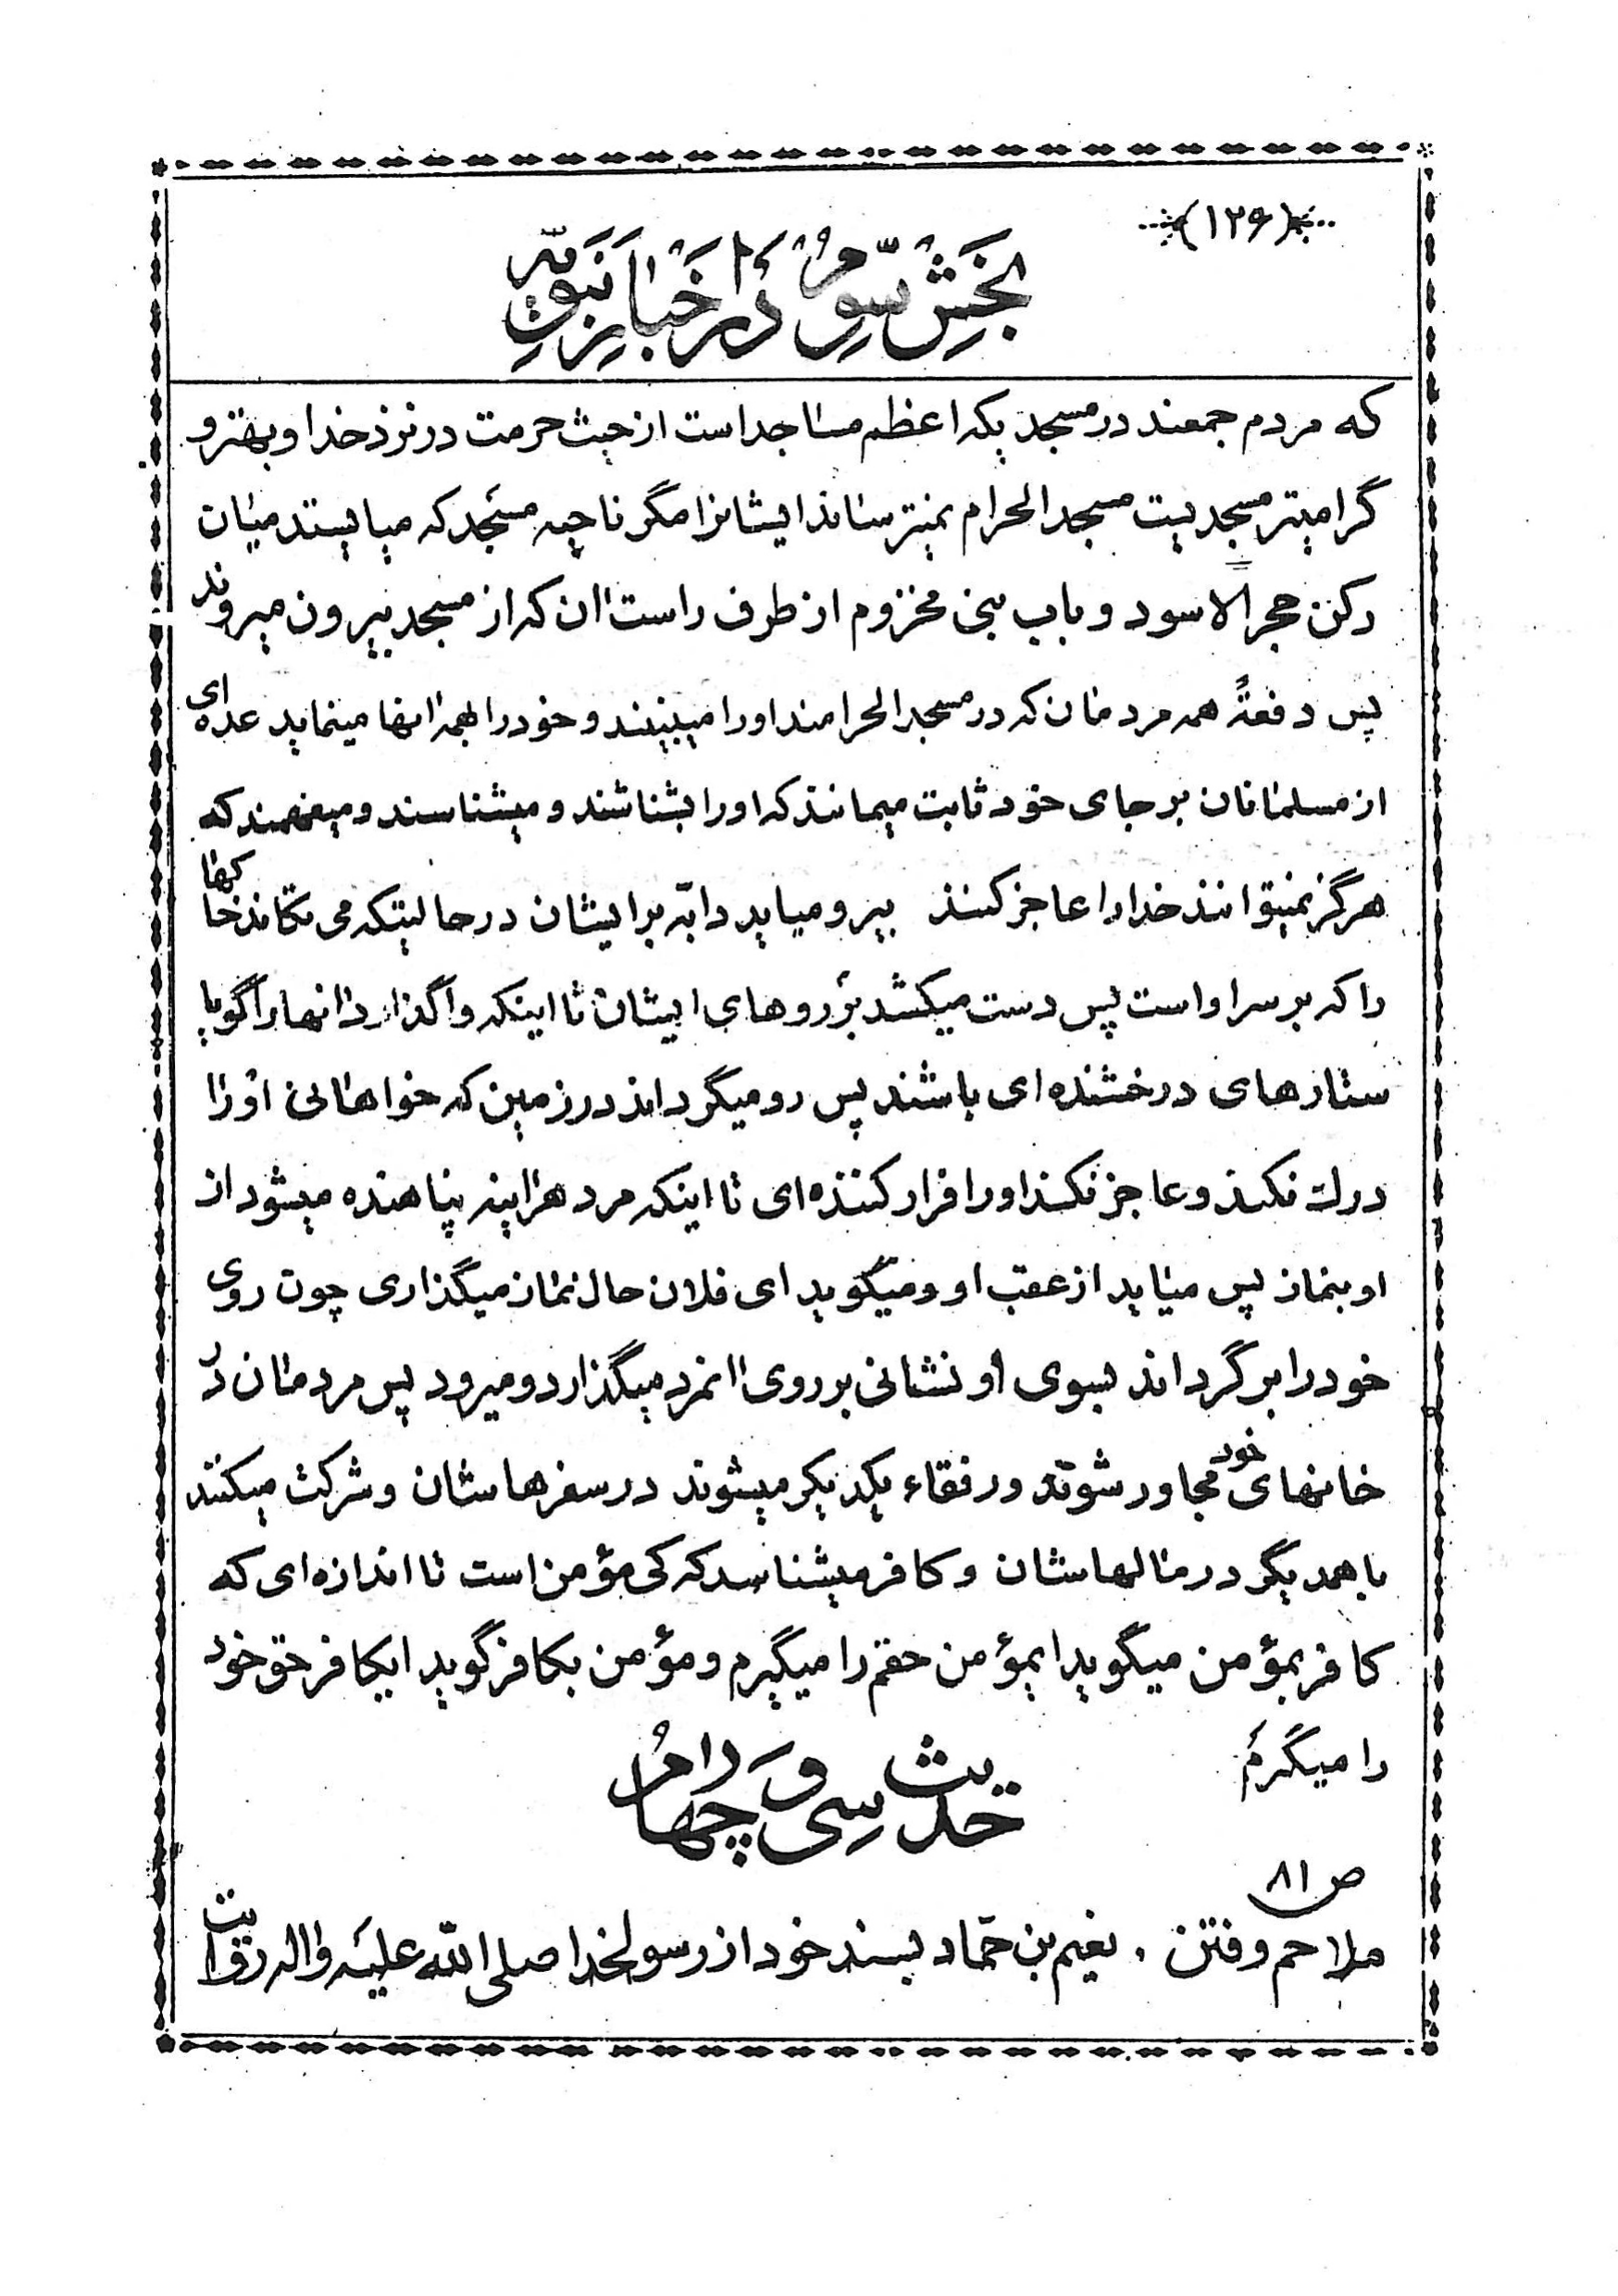 (۱۲۶)
بخش سوم در اخبار نبویه
که مردم جمعند در مسجدیکه اعظم مساجد است از حیث حرمت در نزد خدا و بهتر و
گرامیتر مسجدیت مسجدالحرام نمیترساند ایشانرا مگر ناحیه مسجد که میایستد میان
رکن حجرالاسود و باب بنی مخزوم از طرف راست ان که از مسجد بیرون میروند
پس دفعةً همه مردمان که در مسجدالحرامند او را میبینند و خود را بهمه انها مینماید عده‌ای
از مسلمانان بر جای خود ثابت میمانند که او را بشناشند و میشناسند و میفهمند که
هرگز نمیتوانند خدا را عاجز کنند بیرو میاید دابّه بر ایشان در حالیتکه می تکاند خاکها
را که بر سر او است پس دست میکشد بر روهای ایشان تا اینکه واگذارد انها را گویا
ستارهای درخشنده‌ای باشند پس رو میگرداند در زمین که خواهانی او را
درك نکند و عاجز نکند او را فرار کننده‌ای تا اینکه مرد هراینه پناهنده میشود از
او بنماز پس میاید از عقب او و میگوید ای فلان حال نماز میگذاری چون روی
خود را برگرداند بسوی او نشانی بر روی انمرد میگذارد و میرود پس مردمان در
خانهای خود مجاور شوند و رفقاء یکدیکر میشوند در سفرهاشان و شرکت میکنند
با همدیگر در مالهاشان و کافر میشناسد که کی مؤمن است تا اندازه‌ای که
کافر بمؤمن میگوید ایمؤمن حقم را میگیرم و مؤمن بکافر گوید ایکافر حق خود
را میگرم
حدیث سی و چهارم
ص ۸۱
ملاحم و فتن . نعیم بن حمّاد بسند خود از رسولخدا صلی الله علیه واله روایت